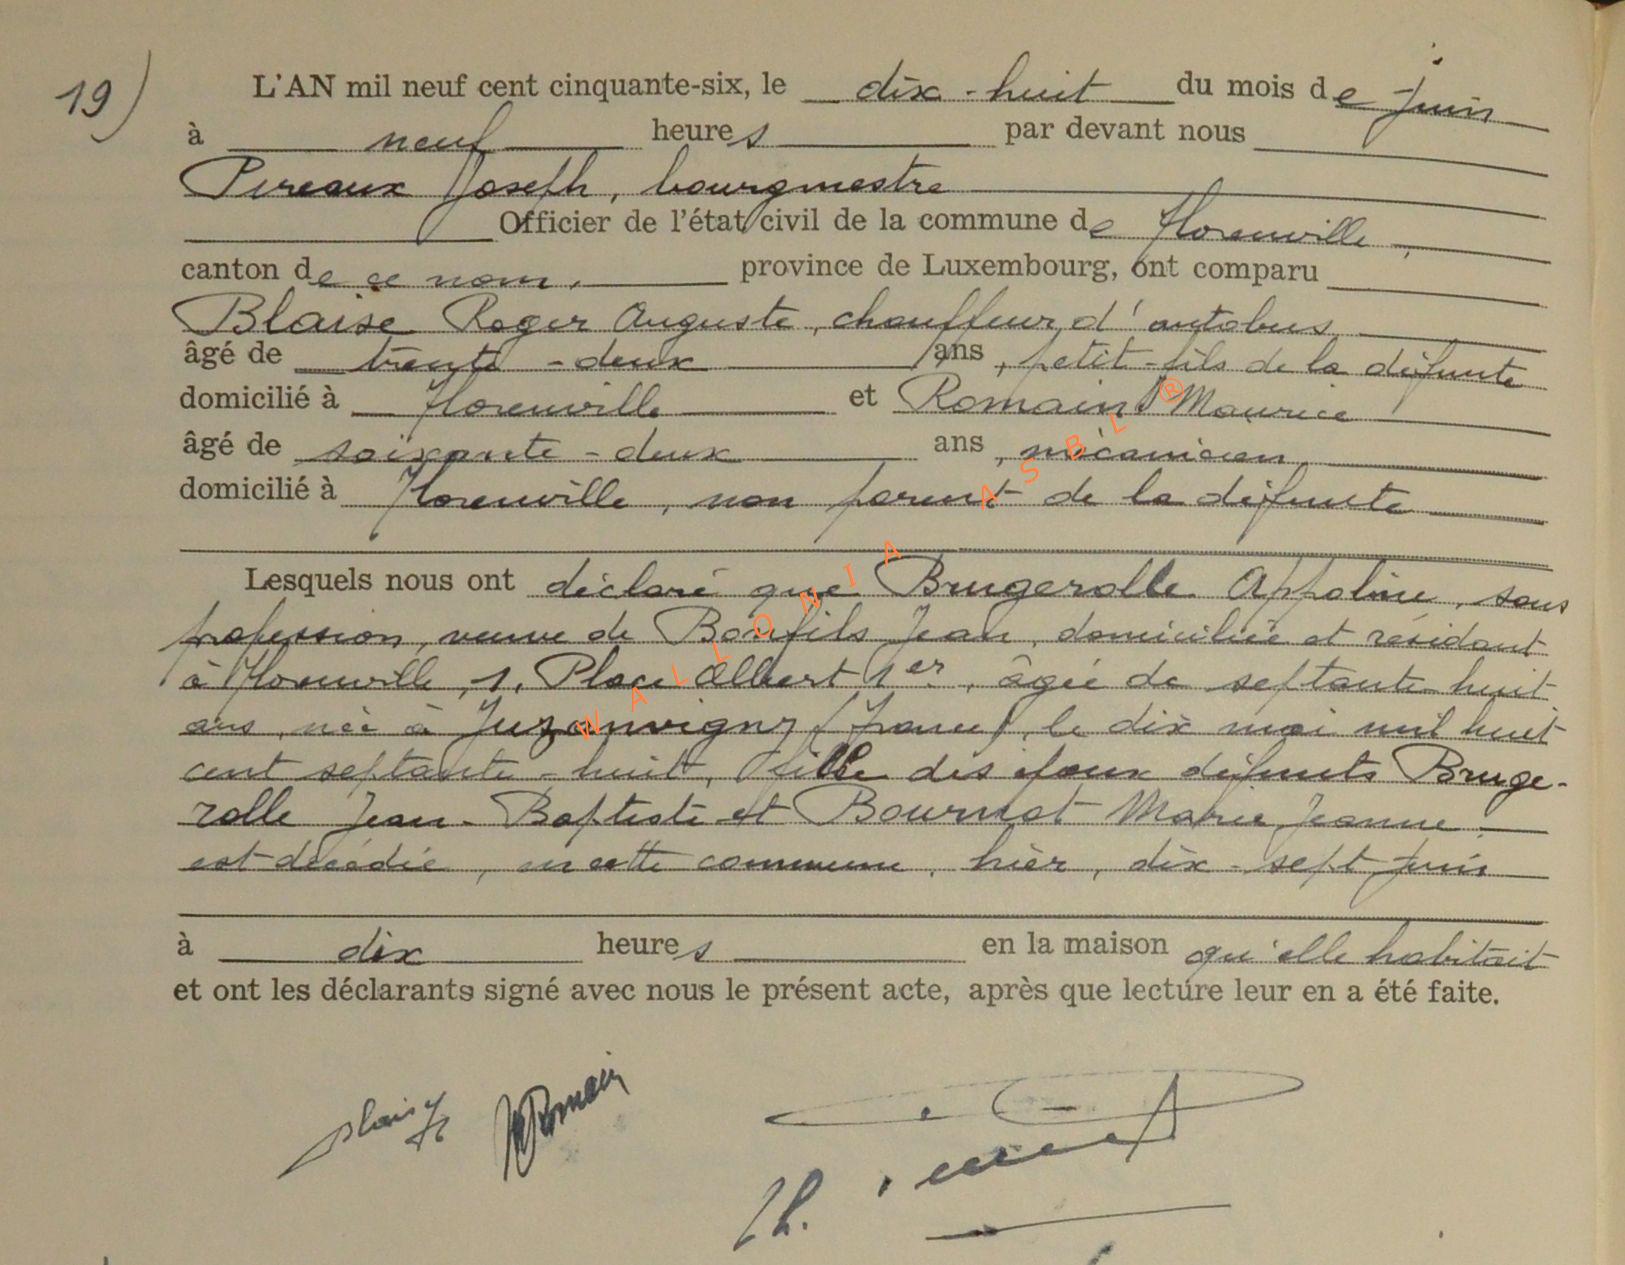 19)
L'AN mil neuf cent cinquante-six, le dix-huit du mois de juin
à neuf heures par devant nous
Pireaux Joseph, bourgmestre
Officier de l'état civil de la commune de Florenville,
canton de ce nom, province de Luxembourg, ont comparu
Blaise Roger Auguste, chauffeur d'autobus
âgé de trente-deux ans, petit-fils de la défunte
domicilié à Florenville et Romain Maurice
âgé de soixante-deux ans, mécanicien
domicilié à Florenville, non parent de la défunte
Lesquels nous ont déclaré que Brugerolle Appoline, sans
profession, veuve de Bonfils Jean, domiciliée et résidant
à Florenville, 1, Place Albert 1er, âgée de septante-huit
ans, née à Juzanvigny (France), le dix mai mil huit
cent septante-huit, fille des époux défunts Bruge-
rolle Jean-Baptiste et Bournot Marie Jeanne
est décédée, en cette commune, hier, dix-sept juin
à dix heures en la maison qu'elle habitait
et ont les déclarants signé avec nous le présent acte, après que lecture leur en a été faite.
Romain
WALLONIA ASBL ®